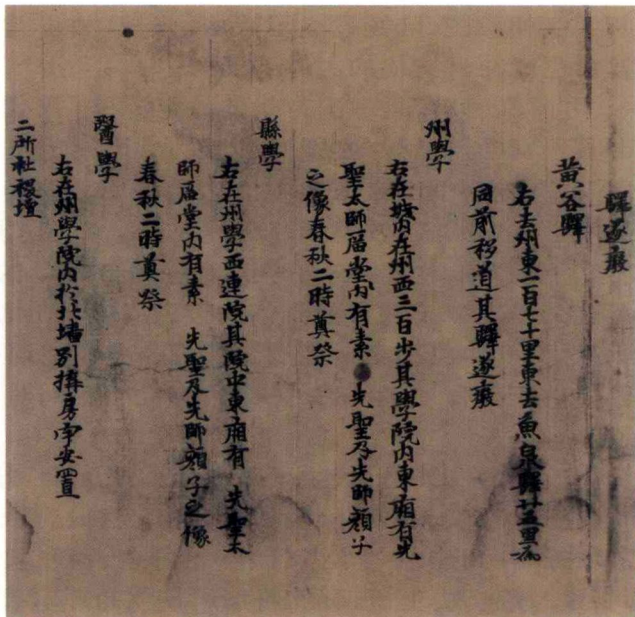 驛遂廢
黄谷驛
右去州東一百七十里東去魚泉驛廿五里爲
同前移道其驛遂廢
州學
右在城内在州西三百步其學院内東廂有先
聖太師厝堂内有素先聖及先師顔子
之像春秋二時奠祭
縣學
右在州學西連院其院中東廂有先聖太
師厝堂内有素先聖及先師顔子之像
春秋二時奠祭
醫學
右在州學院内於北墻別構房宇安置
二所社稷壇